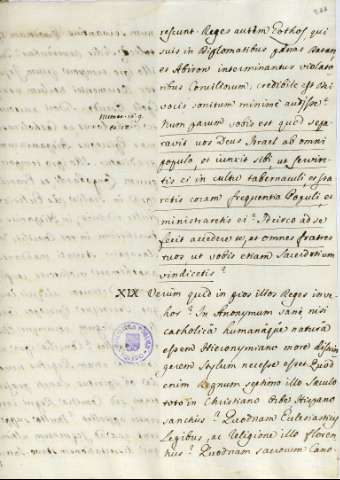 rescunt. Reges autem Gothos qui
suis in Diplomatibus pœnas Datan
et Abiron interminantur violato
ribus Conciliorum, credibile est Di
vocis sonitum minime audisse?
Num parum vobis est quod sepa
ravit vos Deus Israel ab omni
populo, et iunxit sibi, ut servire
tis ei in cultu tabernaculi, et sta
retis coram frequentia Populi et
ministraretis ei? Idcirco ad se
fecit accedere te, et omnes fratres
tuos ut vobis etiam Sacerdotium
vindicetis?
Numer. 16. 9.
et 10.
XIX Verum quid in pios illos Reges inve
hor? In Anonymum sane nisi
catholica humanaque natura
essem Hieronymiano more distrin
gerem Stylum necesse esset. Quod
enim Regnum septimo illo Sæculo
toto in Christiano Orbe Hispano
sanctius? Quodnam Eclesiasticis
Legibus, ac Religione illo floren
tius? Quodnam sacrorum Cano-